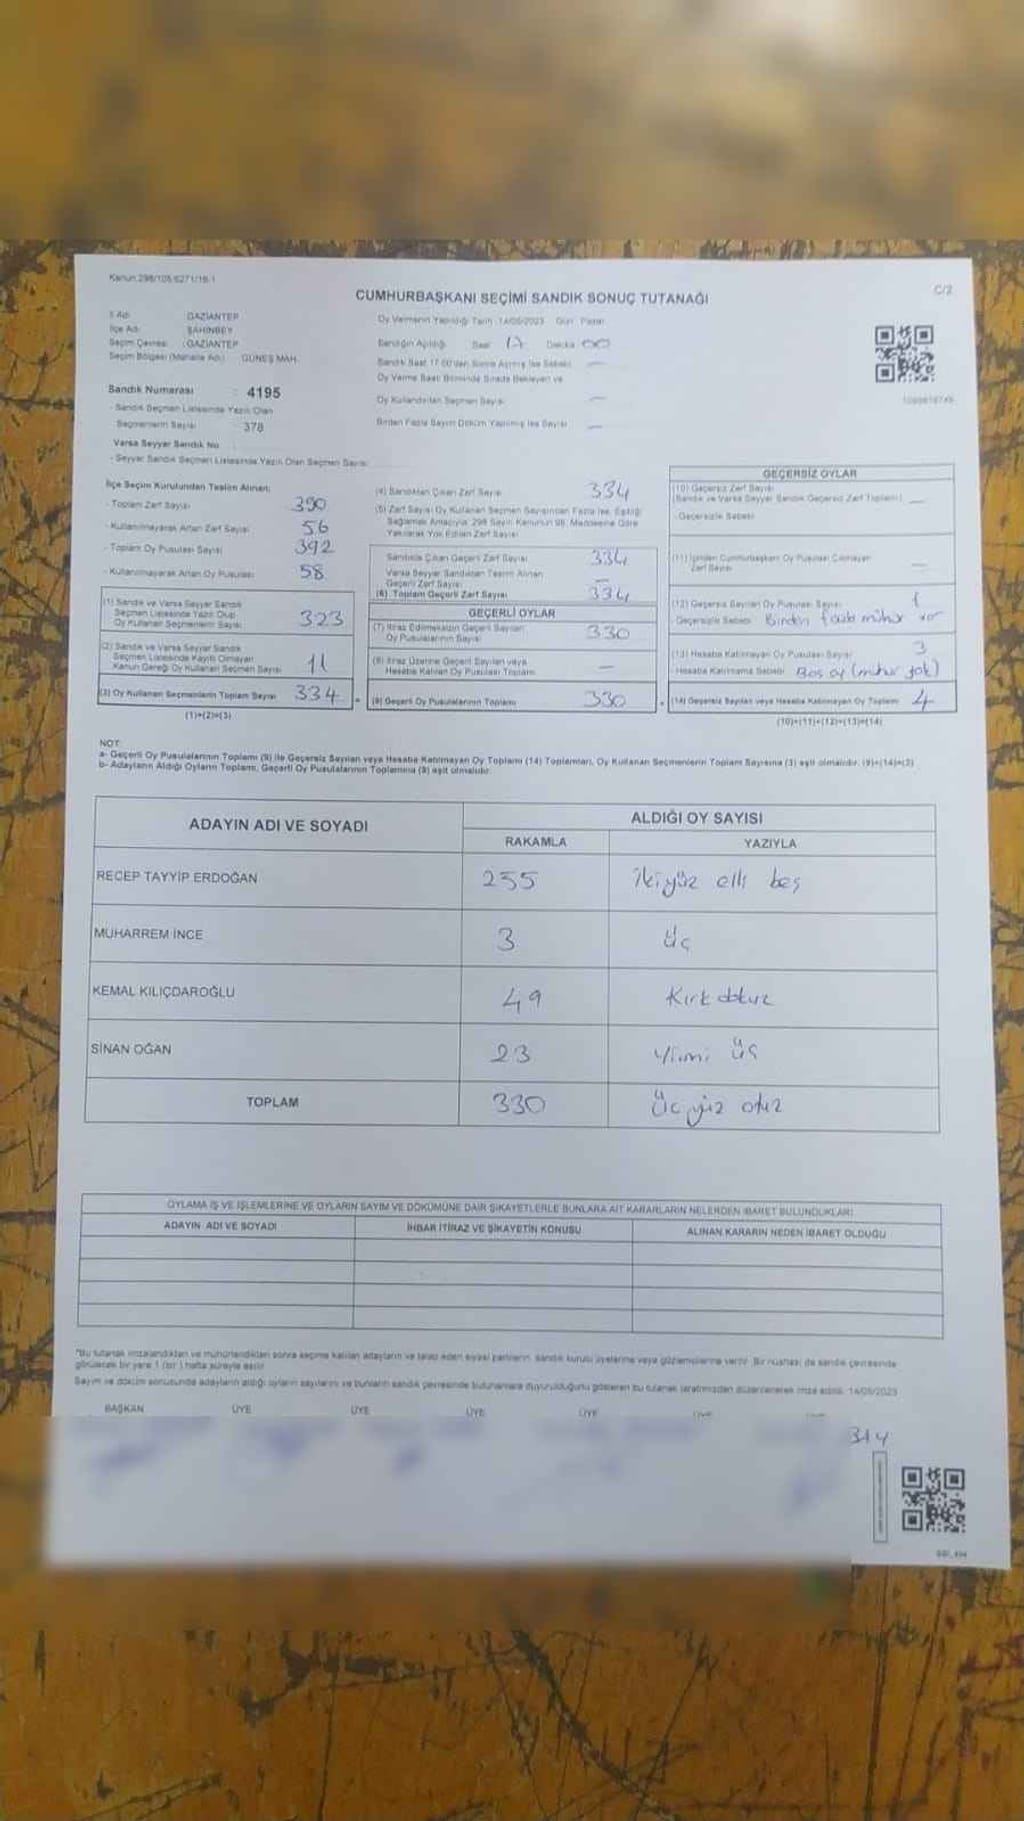 Kanun:298/105,6271/16-1
C/2
CUMHURBAŞKANI SEÇİMİ SANDIK SONUÇ TUTANAĞI
İl Adı : GAZİANTEP
İlçe Adı : ŞAHİNBEY
Seçim Çevresi : GAZİANTEP
Seçim Bölgesi (Mahalle Adı) : GÜNEŞ MAH.
Oy Vermenin Yapıldığı Tarih: 14/05/2023 Gün: Pazar
Sandığın Açıldığı Saat 17 Dakika 00
Sandık Saat 17.00'den Sonra Açılmış İse Sebebi: —
Oy Verme Saati Bitiminde Sırada Bekleyen ve
Oy Kullandırılan Seçmen Sayısı —
Birden Fazla Sayım Döküm Yapılmış İse Sayısı —
Sandık Numarası : 4195
- Sandık Seçmen Listesinde Yazılı Olan
Seçmenlerin Sayısı : 378
Varsa Seyyar Sandık No
- Seyyar Sandık Seçmen Listesinde Yazılı Olan Seçmen Sayısı:
İlçe Seçim Kurulundan Teslim Alınan;
- Toplam Zarf Sayısı 390
- Kullanılmayarak Artan Zarf Sayısı 56
- Toplam Oy Pusulası Sayısı 392
- Kullanılmayarak Artan Oy Pusulası 58
(1) Sandık ve Varsa Seyyar Sandık
Seçmen Listesinde Yazılı Olup
Oy Kullanan Seçmenlerin Sayısı 323
(2) Sandık ve Varsa Seyyar Sandık
Seçmen Listesinde Kayıtlı Olmayan
Kanun Gereği Oy Kullanan Seçmen Sayısı 11
(3) Oy Kullanan Seçmenlerin Toplam Sayısı 334
(1)+(2)=(3)
(4) Sandıktan Çıkan Zarf Sayısı 334
(5) Zarf Sayısı Oy Kullanan Seçmen Sayısından Fazla İse, Eşitliği
Sağlamak Amacıyla, 298 Sayılı Kanunun 98. Maddesine Göre
Yakılarak Yok Edilen Zarf Sayısı
Sandıkta Çıkan Geçerli Zarf Sayısı 334
Varsa Seyyar Sandıktan Teslim Alınan
Geçerli Zarf Sayısı —
(6) Toplam Geçerli Zarf Sayısı 334
GEÇERLİ OYLAR
(7) İtiraz Edilmeksizin Geçerli Sayılan
Oy Pusulalarının Sayısı 330
(8) İtiraz Üzerine Geçerli Sayılan veya
Hesaba Katılan Oy Pusulası Toplamı —
(9) Geçerli Oy Pusulalarının Toplamı 330
GEÇERSİZ OYLAR
(10) Geçersiz Zarf Sayısı
(Sandık ve Varsa Seyyar Sandık Geçersiz Zarf Toplamı) —
- Geçersizlik Sebebi:
(11) İçinden Cumhurbaşkanı Oy Pusulası Çıkmayan
Zarf Sayısı —
(12) Geçersiz Sayılan Oy Pusulası Sayısı 1
- Geçersizlik Sebebi Birden fazla mühür var
(13) Hesaba Katılmayan Oy Pusulası Sayısı 3
- Hesaba Katılmama Sebebi Boş oy (mühür yok)
(14) Geçersiz Sayılan veya Hesaba Katılmayan Oy Toplamı 4
(10)+(11)+(12)+(13)=(14)
NOT:
a- Geçerli Oy Pusulalarının Toplamı (9) ile Geçersiz Sayılan veya Hesaba Katılmayan Oy Toplamı (14) Toplamları, Oy Kullanan Seçmenlerin Toplam Sayısına (3) eşit olmalıdır. (9)+(14)=(3)
b- Adayların Aldığı Oyların Toplamı, Geçerli Oy Pusulalarının Toplamına (9) eşit olmalıdır.
ADAYIN ADI VE SOYADI
ALDIĞI OY SAYISI
RAKAMLA YAZIYLA
RECEP TAYYİP ERDOĞAN 255 İkiyüz elli beş
MUHARREM İNCE 3 üç
KEMAL KILIÇDAROĞLU 49 Kırk dokuz
SİNAN OĞAN 23 Yirmi üç
TOPLAM 330 Üçyüz otuz
OYLAMA İŞ VE İŞLEMLERİNE VE OYLARIN SAYIM VE DÖKÜMÜNE DAİR ŞİKAYETLERLE BUNLARA AİT KARARLARIN NELERDEN İBARET BULUNDUKLARI
ADAYIN ADI VE SOYADI İHBAR İTİRAZ VE ŞİKAYETİN KONUSU ALINAN KARARIN NEDEN İBARET OLDUĞU
"Bu tutanak imzalandıktan ve mühürlendikten sonra seçime katılan adayların ve talep eden siyasi partilerin, sandık kurulu üyelerine veya gözlemcilerine verilir. Bir nüshası da sandık çevresinde
görülecek bir yere 1 (bir) hafta süreyle asılır.
Sayım ve döküm sonucunda adayların aldığı oyların sayılarını ve bunların sandık çevresinde bulunanlara duyurulduğunu gösteren bu tutanak tarafımızdan düzenlenerek imza edildi. 14/05/2023
BAŞKAN ÜYE ÜYE ÜYE ÜYE ÜYE
314